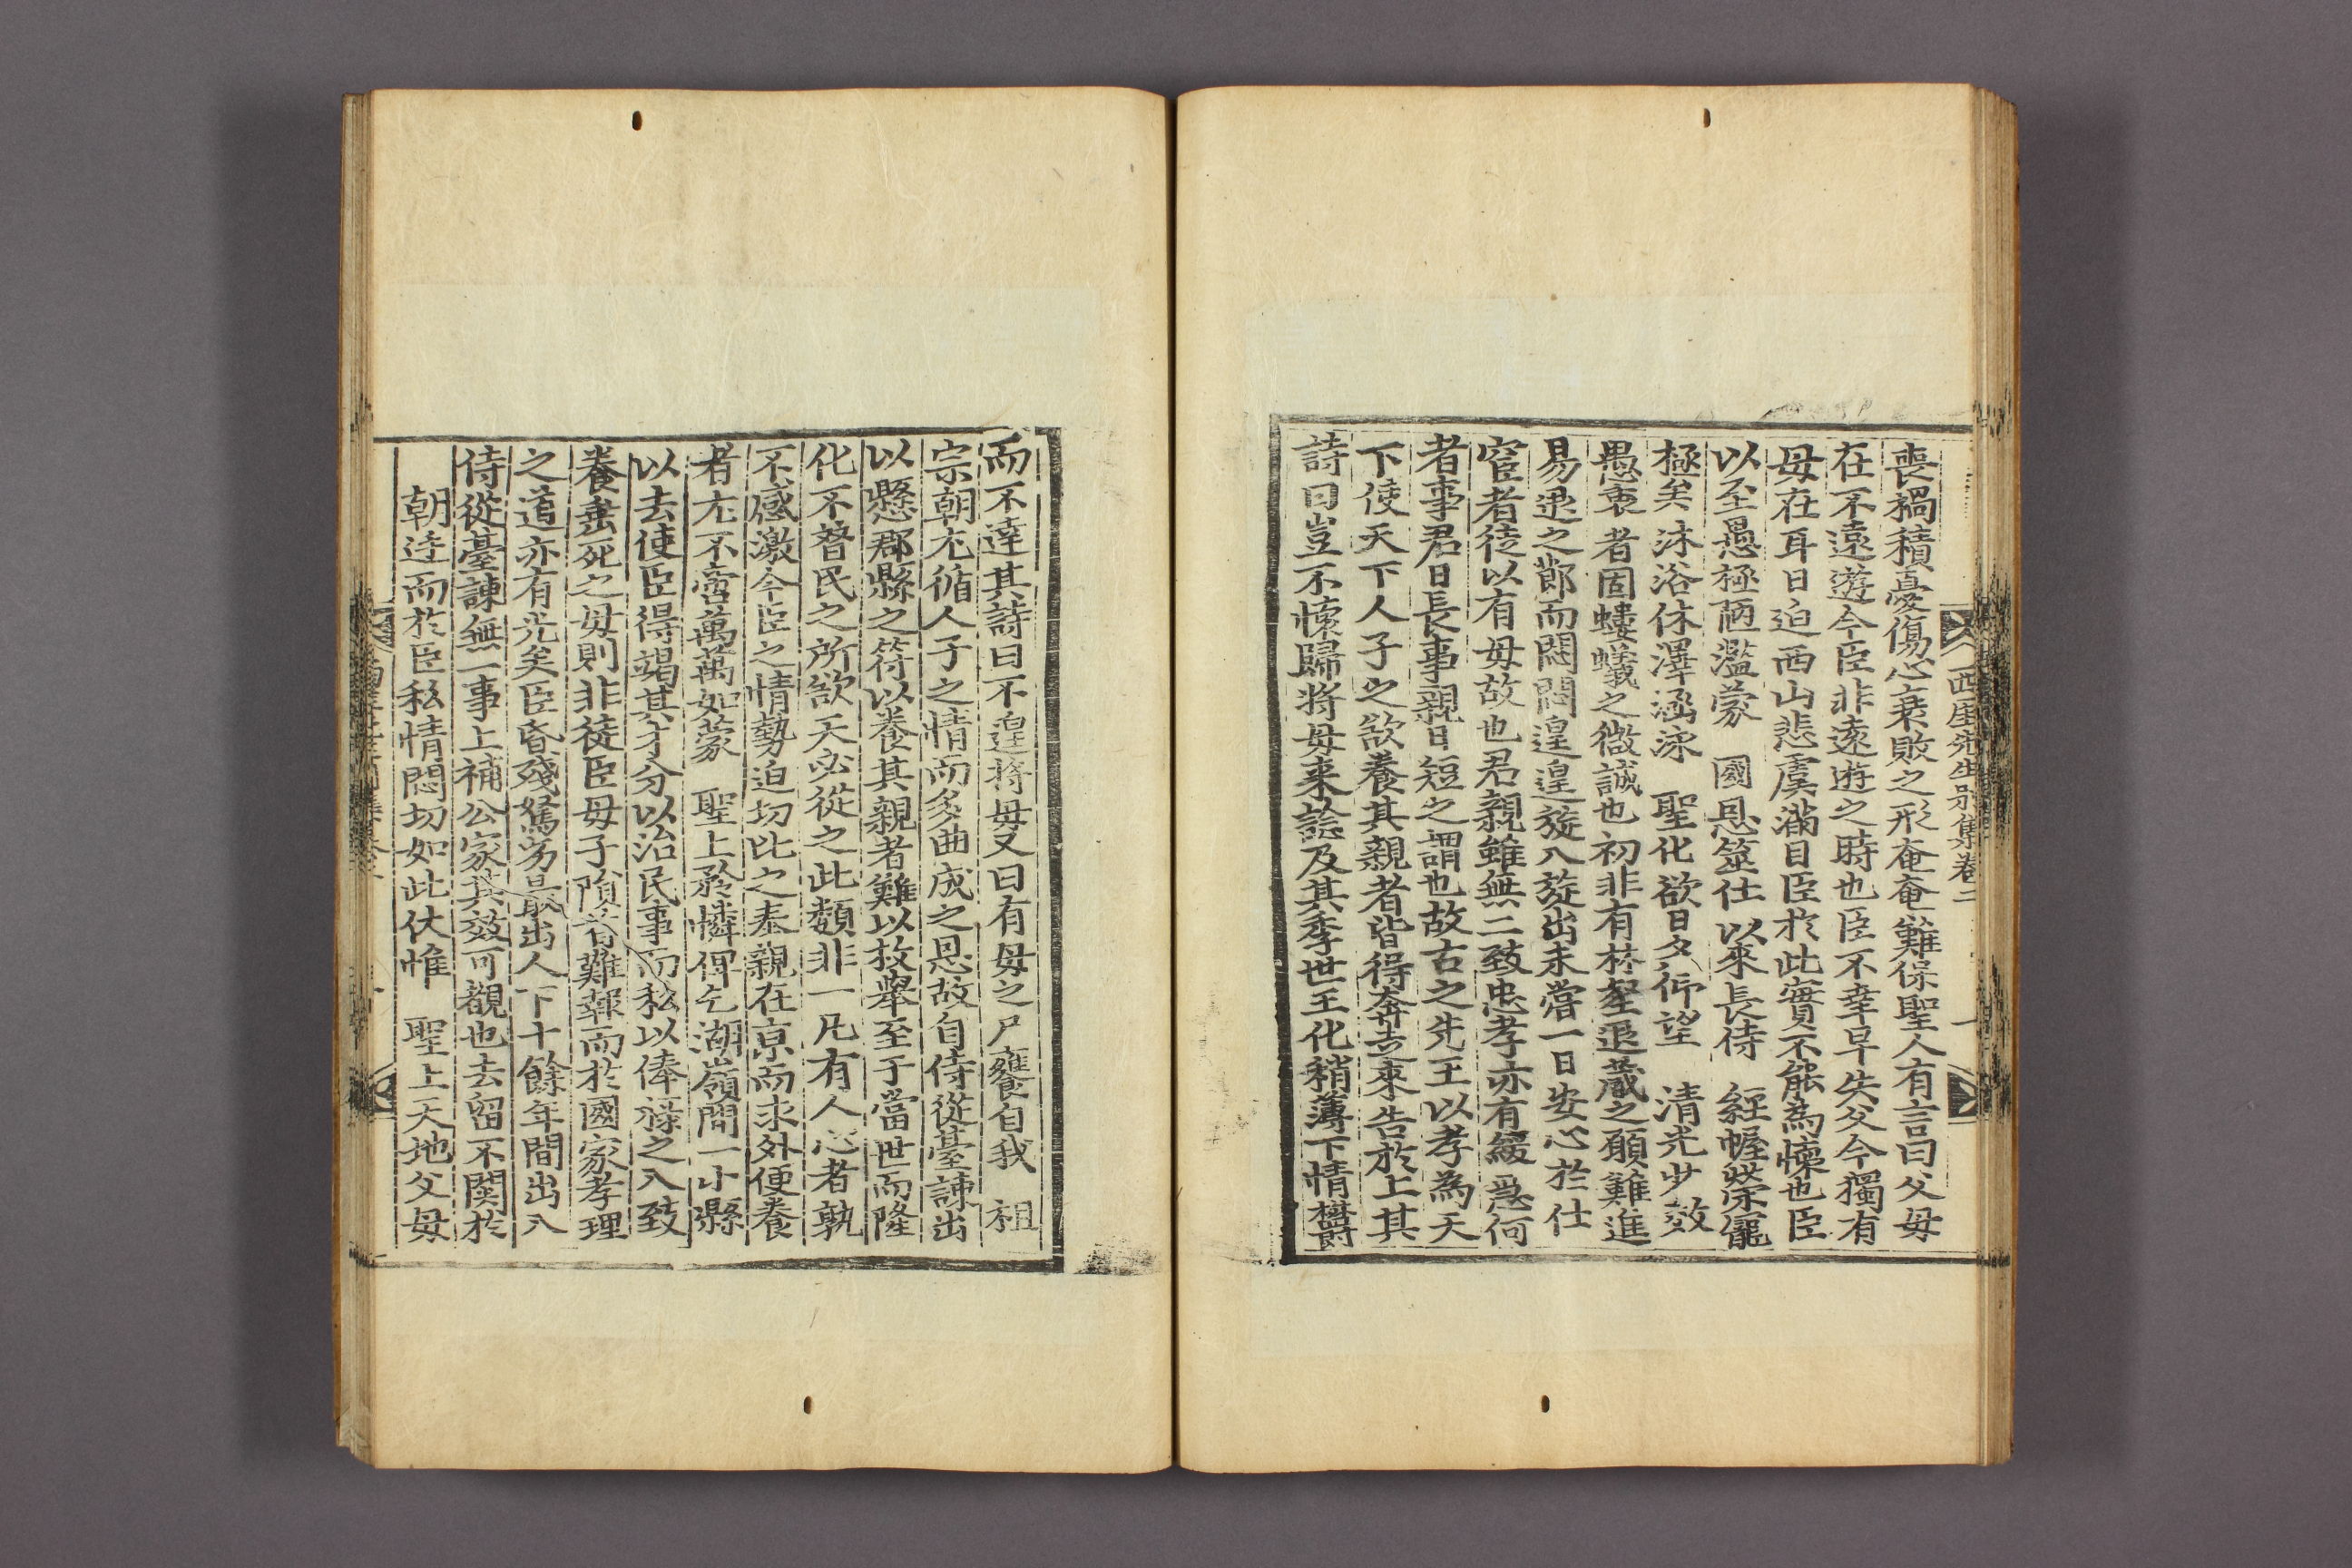 西厓先生別集卷二
喪禍積憂傷心衰敗之形奄奄難保聖人有言曰父母
在不遠遊今臣非遠遊之時也臣不幸早失父今獨有
母在耳日迫西山悲虞滿目臣於此實不能為懷也臣
以至愚極陋濫蒙 國恩筮仕以來長侍 經幄榮寵
極矣沐浴休澤涵泳 聖化欲日夕仰望 淸光少效
愚衷者固螻蟻之微誠也初非有林壑退藏之願難進
易退之節而悶悶遑遑旋入旋出未嘗一日安心於仕
宦者徒以有母故也君親雖無二致忠孝亦有緩急何
者事君日長事親日短之謂也故古之先王以孝為天
下使天下人子之欲養其親者皆得奔走來告於上其
詩曰豈不懷歸將母來諗及其季世王化稍薄下情欝
而不達其詩曰不遑將母又曰有母之尸饔自我 祖
宗朝尤循人子之情而多曲成之恩故自侍從臺諫出
以懸郡縣之符以養其親者難以枚擧至于當世而隆
化不替民之所欲天必從之此類非一凡有人心者孰
不感激今臣之情勢迫切比之奉親在京而求外便養
者尤不啻萬萬如蒙 聖上矜憐俾乞湖嶺間一小縣
以去使臣得竭其才分以治民事而私以俸祿之入致
養垂死之母則非徒臣母子隕首難報而於國家孝理
之道亦有光矣臣昏殘駑劣最出人下十餘年間出入
侍從臺諫無一事上補公家其效可覩也去留不關於
朝迬而於臣私情悶切如此伏惟 聖上天地父母